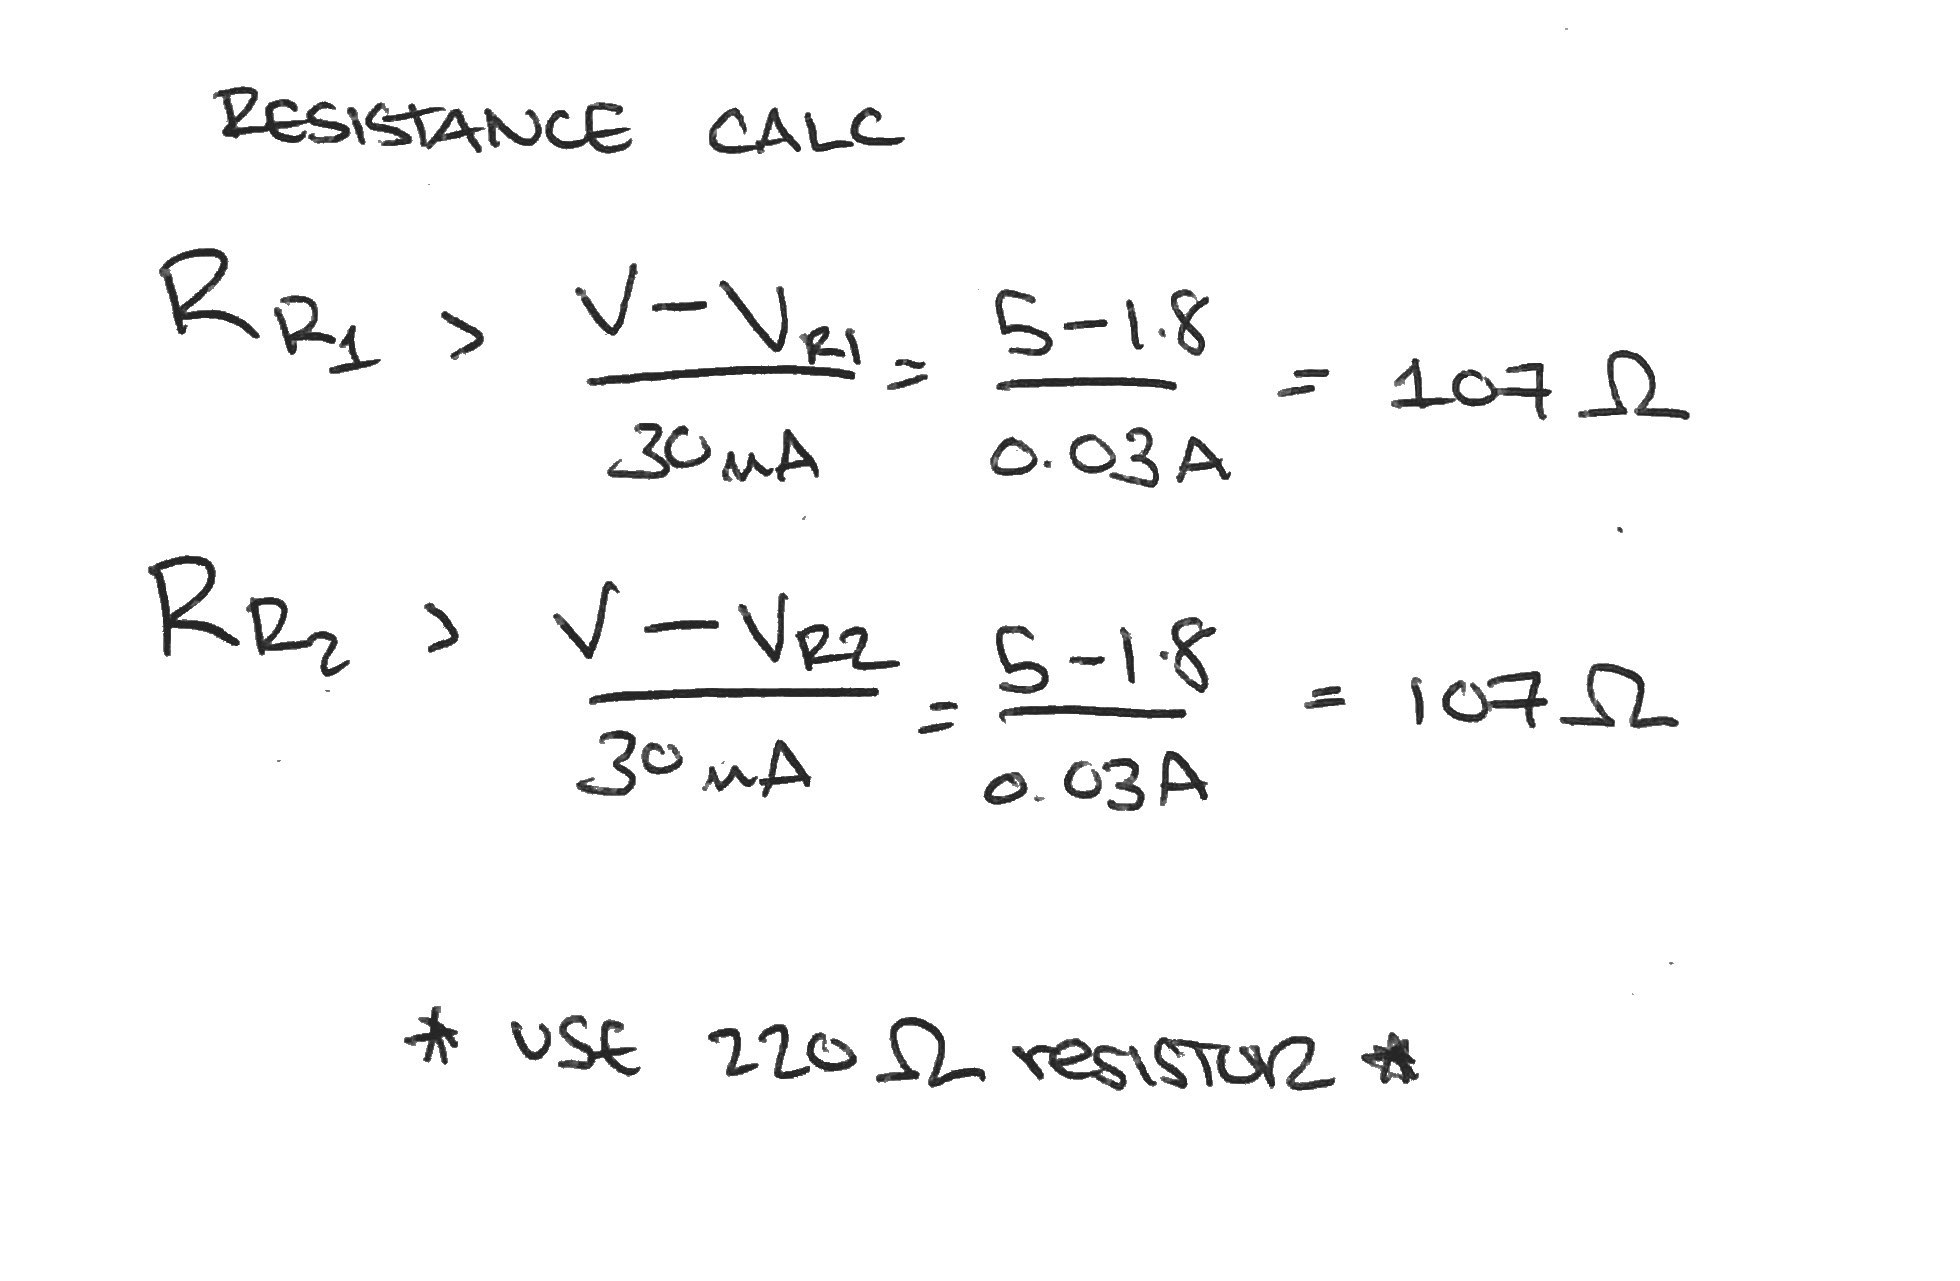 RESISTANCE CALC
R_R1 > (V - V_R1) / 30mA = (5 - 1.8) / 0.03A = 107 Ω
R_R2 > (V - V_R2) / 30mA = (5 - 1.8) / 0.03A = 107 Ω
* USE 220 Ω resistor *